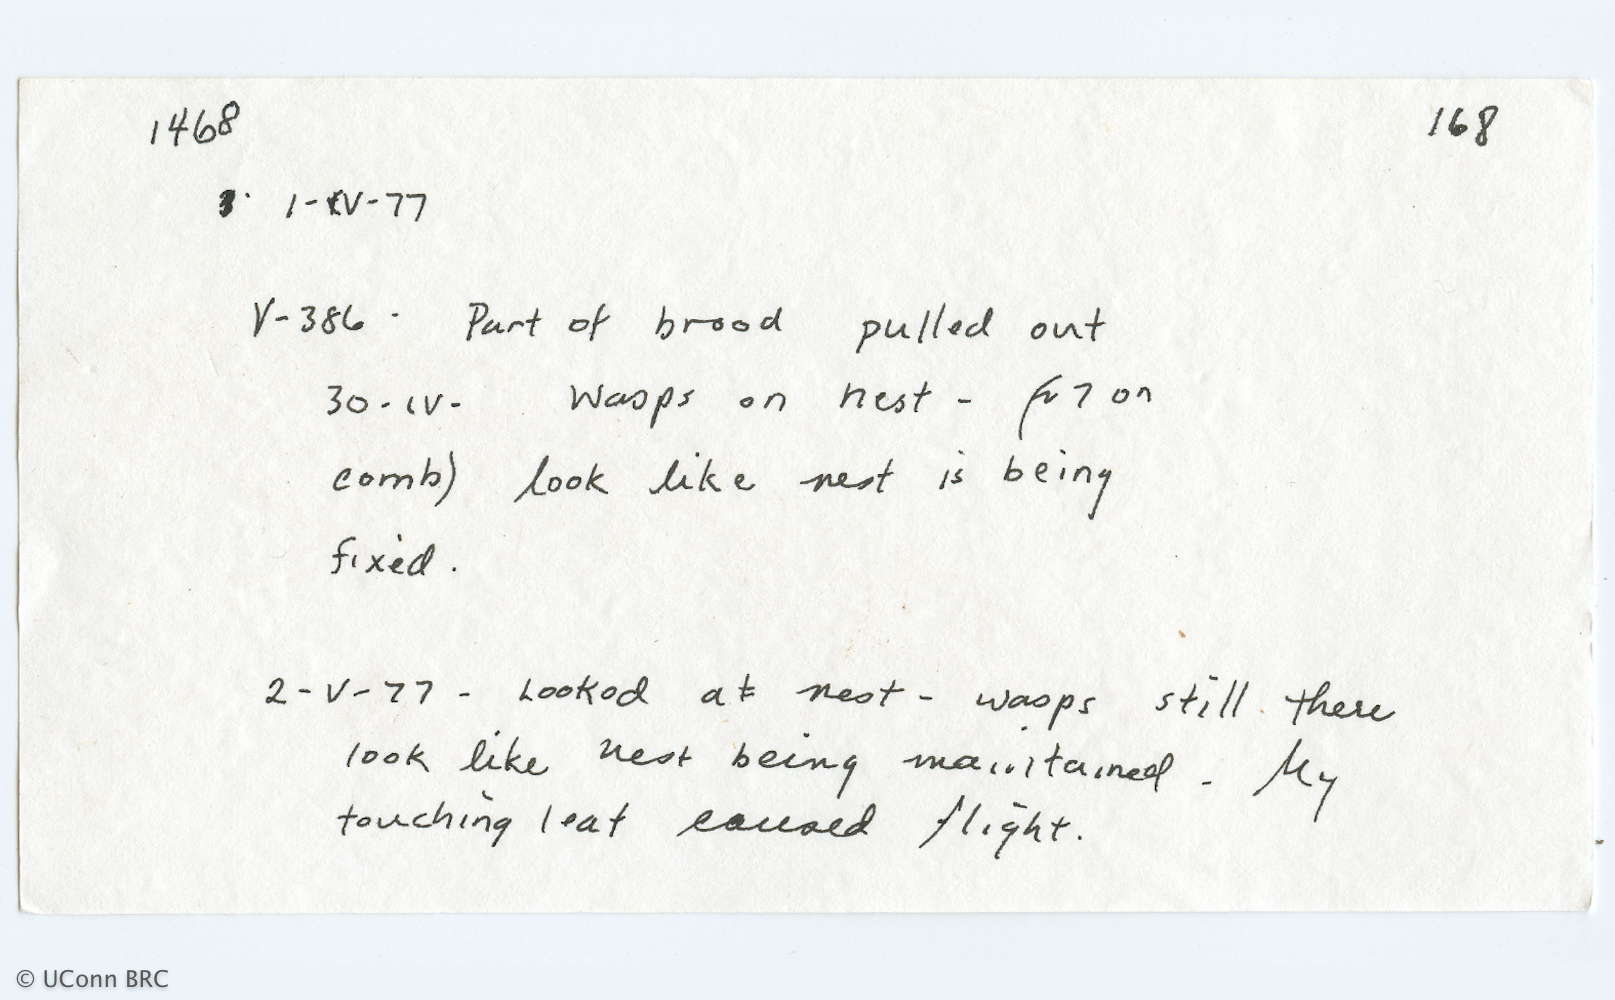 1468 168
3. 1-IV-77
V-386. Part of brood pulled out
30-IV- Wasps on nest - (~7 on
comb) look like nest is being
fixed.
2-V-77 - Looked at nest - wasps still there
look like nest being maintained. My
touching leaf caused flight.
© UConn BRC